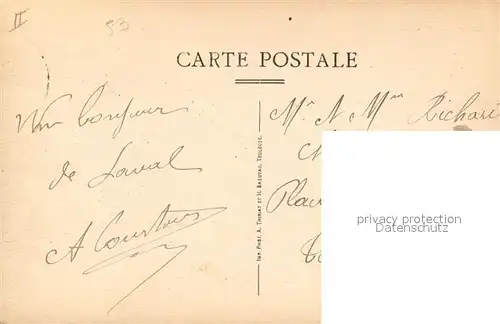 II
53
CARTE POSTALE
Un bonjour
de Laval
A Courtois
Imp. Phot. A. Thiriat et H. Basuyau, Toulouse.
Mr & Mme Richard
Place
privacy protection
Datenschutz